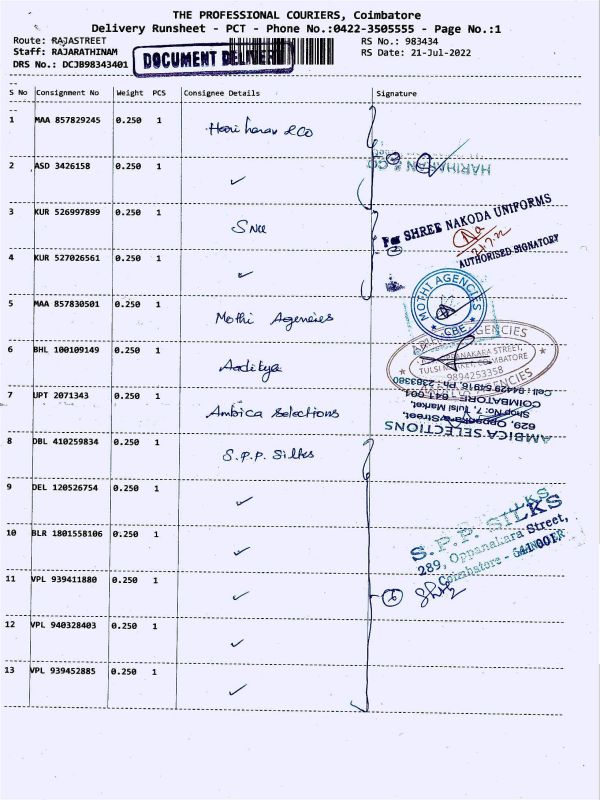 THE PROFESSIONAL COURIERS, Coimbatore
Delivery Runsheet - PCT - Phone No.:0422-3505555 - Page No.:1
Route: RAJASTREET RS No.: 983434
Staff: RAJARATHINAM RS Date: 21-Jul-2022
DRS No.: DCJB98343401
DOCUMENT DELIVERY
S No Consignment No Weight PCS Consignee Details Signature
1 MAA 857829245 0.250 1
HARIHARAN & CO
2 ASD 3426158 0.250 1 ✓
3 KUR 526997899 0.250 1 SNU
For SHREE NAKODA UNIFORMS
21.7.22
AUTHORISED SIGNATORY
4 KUR 527026561 0.250 1 ✓
5 MAA 857830501 0.250 1 Mothi Agencies
MOTHI AGENCIES
CBE
6 BHL 100109149 0.250 1 Aaditya
AGENCIES
TULSI MARKET, COIMBATORE
9894253358
7 UPT 2071343 0.250 1 Ambica Selections
AMBICA SELECTIONS
629, Oppanakara Street,
Shop No: 7, Tulsi Market,
COIMBATORE - 641 001.
8 DBL 410259834 0.250 1 S.P.P. Silks
9 DEL 120526754 0.250 1 ✓
10 BLR 1801558106 0.250 1 ✓
S.P.P. SILKS
289, Oppanakara Street,
Coimbatore - 641 001.
11 VPL 939411880 0.250 1 ✓
6
12 VPL 940328403 0.250 1 ✓
13 VPL 939452885 0.250 1 ✓